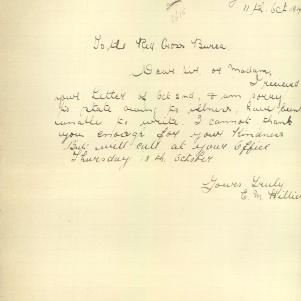 11th Oct 191
To the Red Cross Burea.
Dear Sir, or Madam,
I received
your Letter of Oct 2nd, I am sorry
to state owing to illness, have been
unable to write. I cannot thank
you enough for your Kindness
But will call at your Office
Thursday 18th. October
Yours Truly
E. M. Hillier